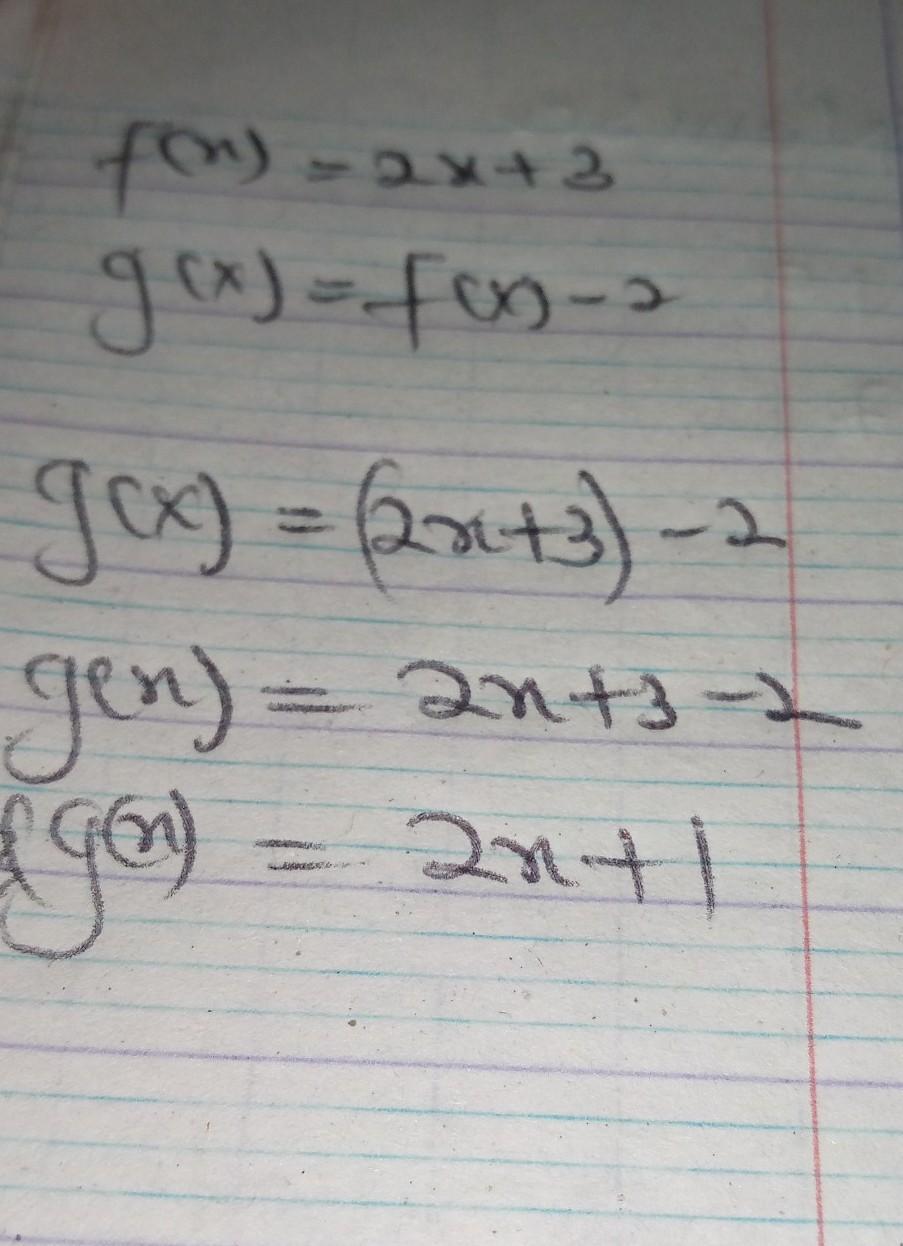 f(x) = 2x + 3
g(x) = f(x) - 2
g(x) = (2x+3) - 2
g(x) = 2x + 3 - 2
g(x) = 2x + 1